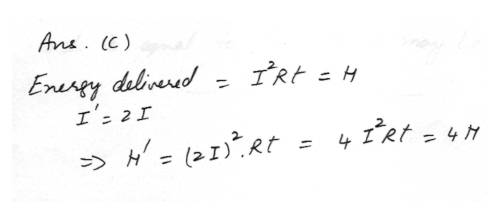 Ans. (C)
Energy delivered = I²Rt = H
I' = 2I
=> H' = (2I)². Rt = 4 I²Rt = 4H